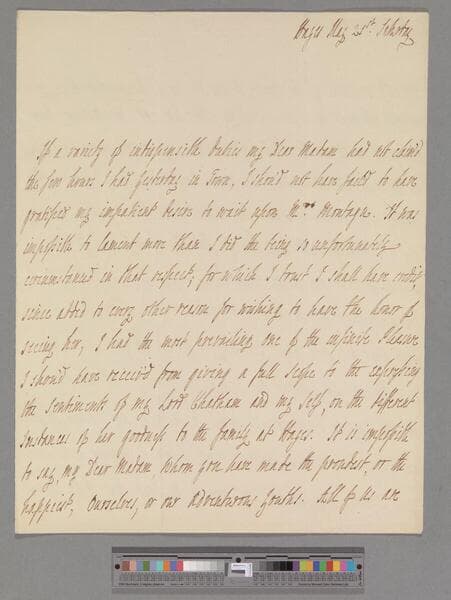 Hayes May 25th. Saturday
If a variety of indispensible Duties my Dear Madam had not claim'd
the few hours I had Yesterday in Town, I shoud not have faild to have
gratified my impatient desire to wait upon Mrs Montagu. It was
impossible to lament more than I did the being so unfortunately
circumstanced in that respect, for which I trust I shall have credit,
since added to every other reason for wishing to have the honor of
seeing her, I had the most prevailing one of the infinite Pleasure
I shoud have receiv'd from giving a full scope to the expressing
the Sentiments of my Lord Chatham and my self, on the different
instances of her goodness to the family at Hayes. It is impossible
to say, my Dear Madam whom you have made the proudest, or the
happiest, Ourselves, or our Adventurous Youths. All of us are